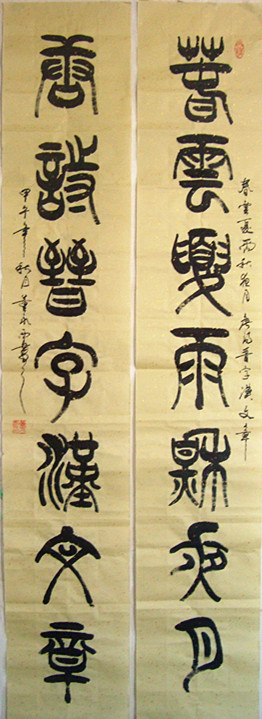 春雲夏雨秋夜月
春雲夏雨秋夜月 唐詩晉字漢文章
唐詩晉字漢文章
甲午年秋月董